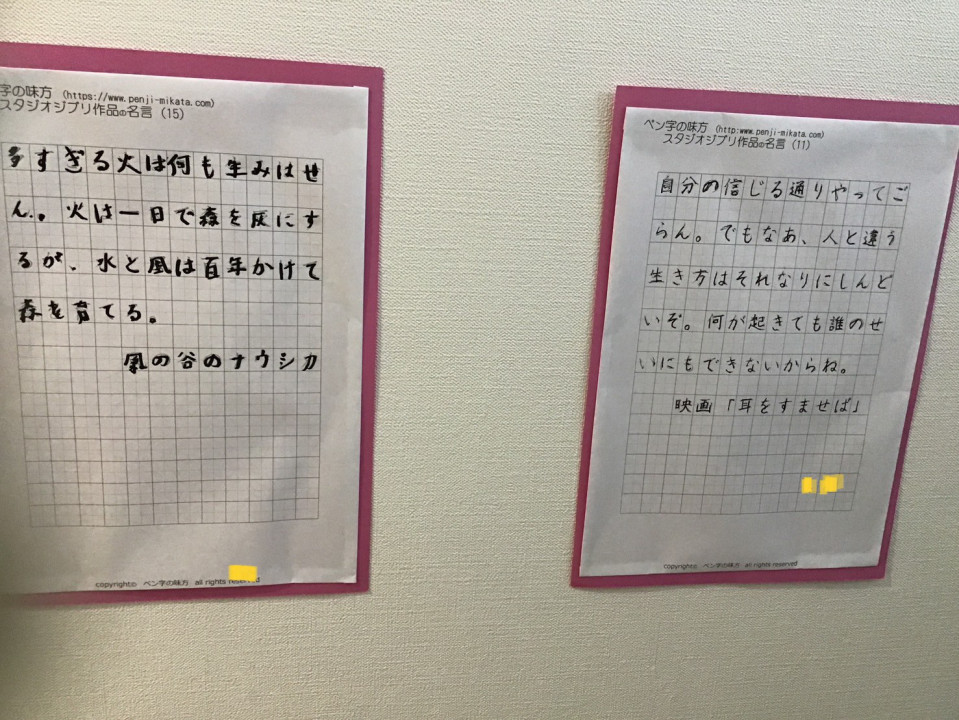 字の味方 (https://www.penji-mikata.com)
スタジオジブリ作品の名言 (15)
多すぎる火は何も生みはせ
ん。火は一日で森を灰にす
るが、水と風は百年かけて
森を育てる。
風の谷のナウシカ
copyright© ペン字の味方 all rights reserved
ペン字の味方 (http:www.penji-mikata.com)
スタジオジブリ作品の名言 (11)
自分の信じる通りやってご
らん。でもなあ、人と違う
生き方はそれなりにしんど
いぞ。何が起きても誰のせ
いにもできないからね。
映画「耳をすませば」
copyright© ペン字の味方 all rights reserved